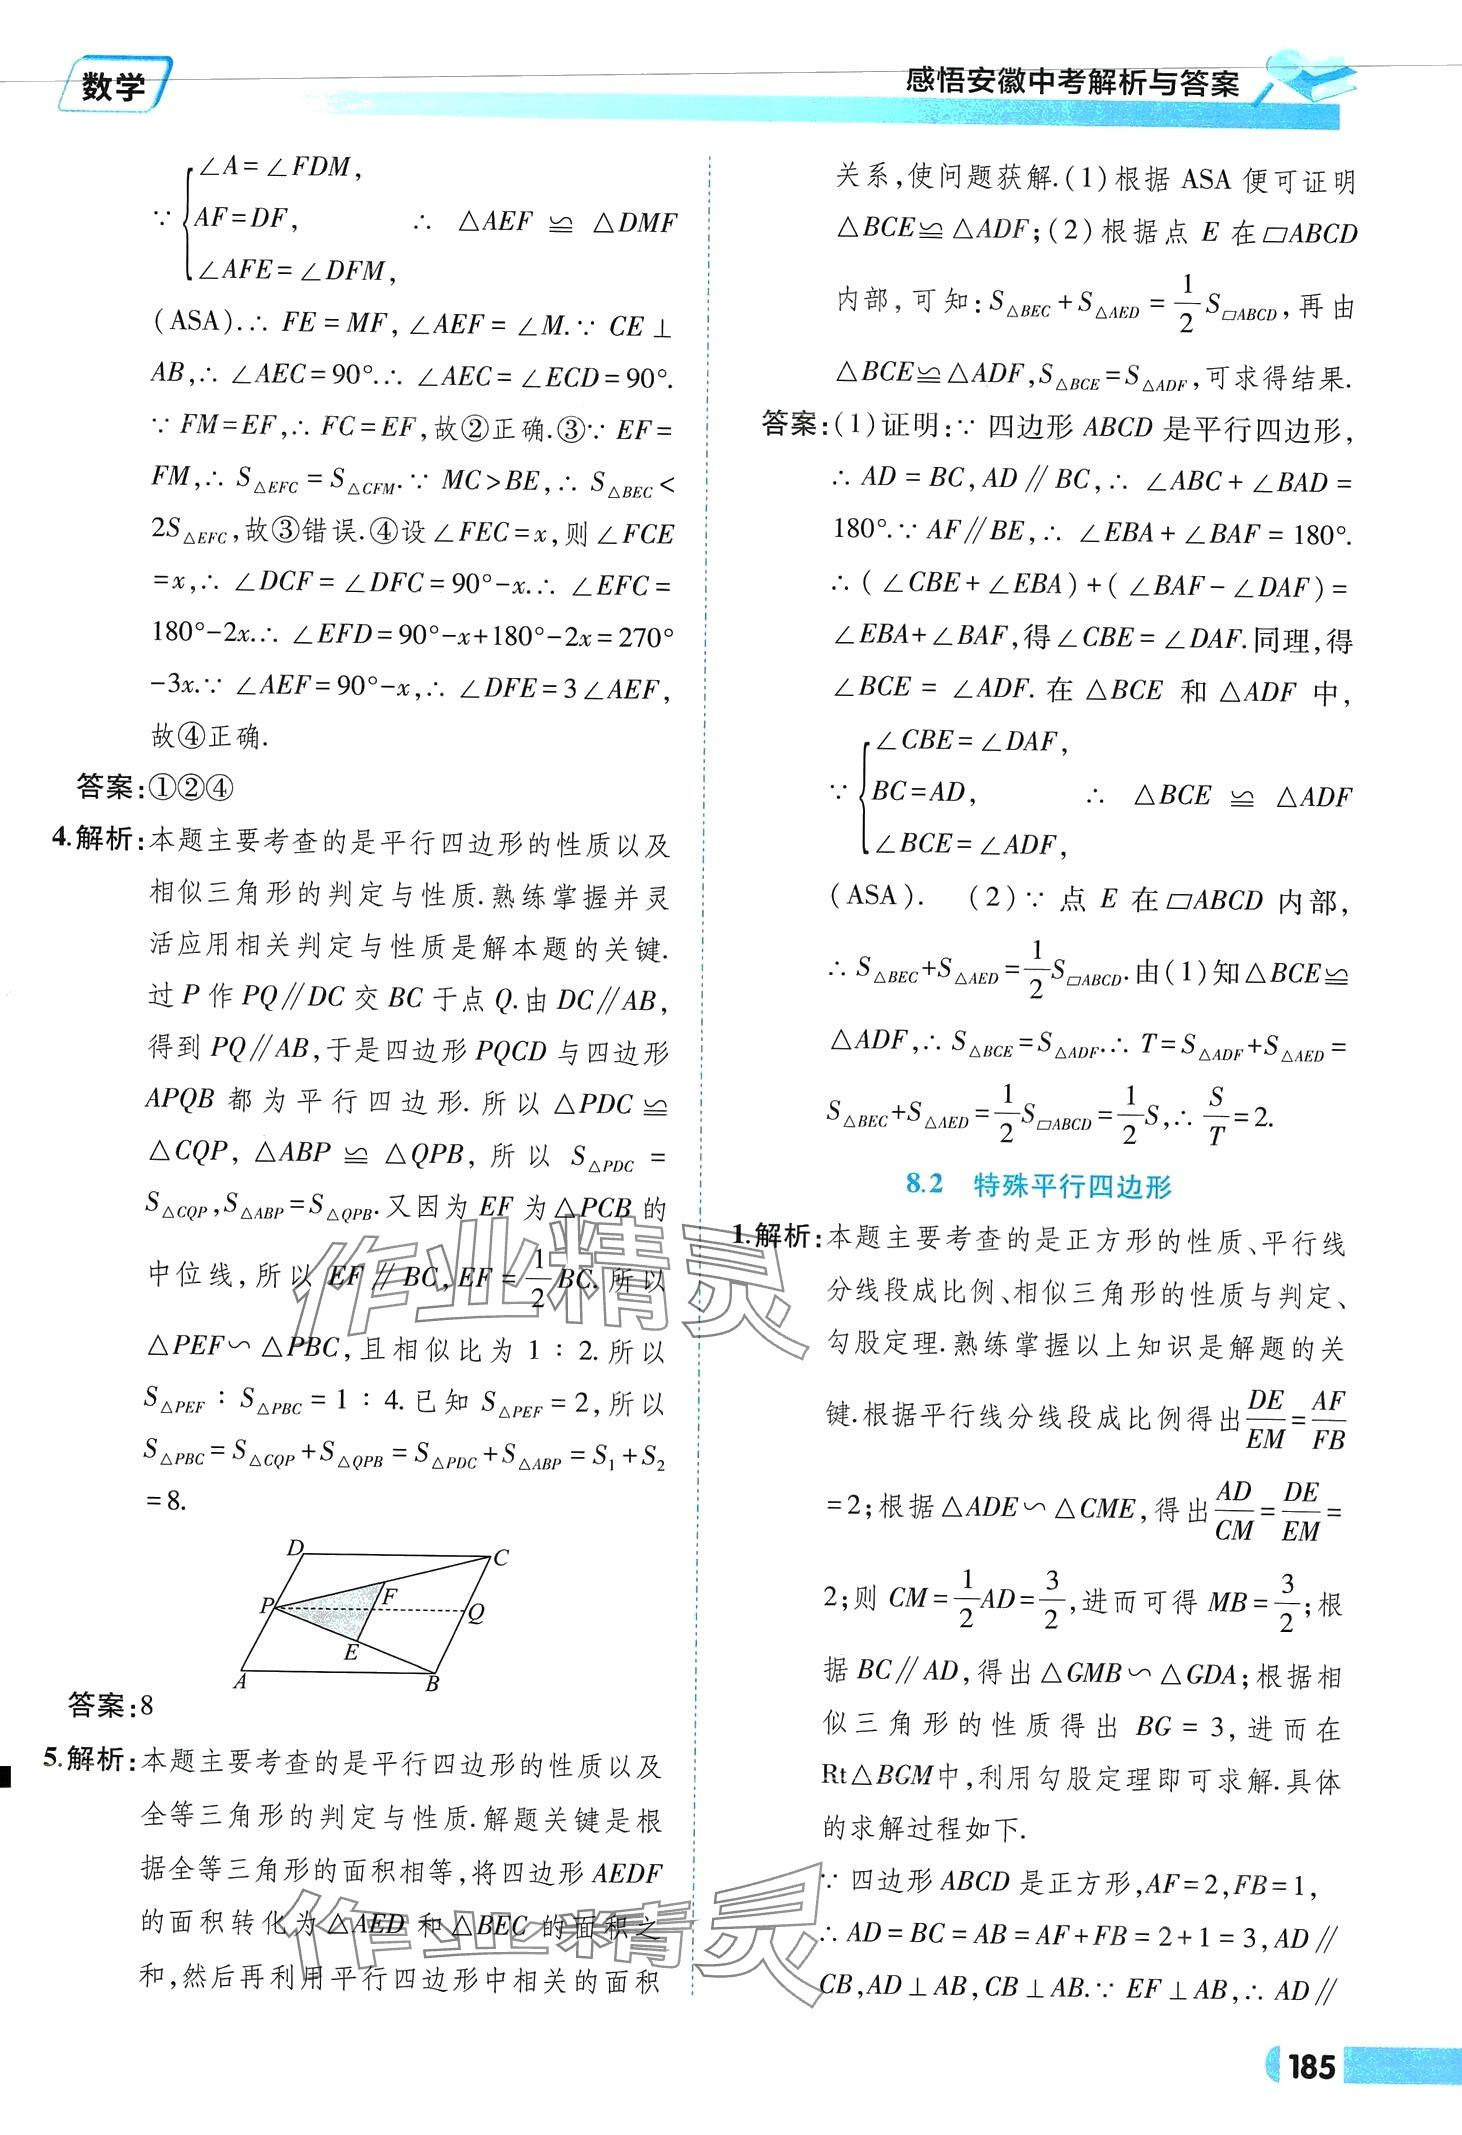 数学
感悟安徽中考解析与答案
∵ {∠A=∠FDM,
AF=DF,
∠AFE=∠DFM,
∴ △AEF ≌ △DMF
(ASA).∴ FE=MF,∠AEF=∠M.∵ CE⊥
AB,∴ ∠AEC=90°.∴ ∠AEC=∠ECD=90°.
∵ FM=EF,∴ FC=EF,故②正确.③∵ EF=
FM,∴ S△EFC=S△CFM.∵ MC>BE,∴ S△BEC<
2S△EFC,故③错误.④设∠FEC=x,则∠FCE
=x,∴ ∠DCF=∠DFC=90°-x.∴ ∠EFC=
180°-2x.∴ ∠EFD=90°-x+180°-2x=270°
-3x.∵ ∠AEF=90°-x,∴ ∠DFE=3∠AEF,
故④正确.
答案:①②④
4.解析:本题主要考查的是平行四边形的性质以及
相似三角形的判定与性质.熟练掌握并灵
活应用相关判定与性质是解本题的关键.
过P作PQ∥DC交BC于点Q.由DC∥AB,
得到PQ∥AB,于是四边形PQCD与四边形
APQB都为平行四边形.所以△PDC≌
△CQP,△ABP≌△QPB,所以S△PDC=
S△CQP,S△ABP=S△QPB.又因为EF为△PCB的
中位线,所以EF∥BC,EF=1/2BC.所以
△PEF∽△PBC,且相似比为1∶2.所以
S△PEF∶S△PBC=1∶4.已知S△PEF=2,所以
S△PBC=S△CQP+S△QPB=S△PDC+S△ABP=S1+S2
=8.
D
C
F
P
Q
E
A
B
答案:8
5.解析:本题主要考查的是平行四边形的性质以及
全等三角形的判定与性质.解题关键是根
据全等三角形的面积相等,将四边形AEDF
的面积转化为△AED和△BEC的面积之
和,然后再利用平行四边形中相关的面积
关系,使问题获解.(1)根据ASA便可证明
△BCE≌△ADF;(2)根据点E在▱ABCD
内部,可知:S△BEC+S△AED=1/2S▱ABCD,再由
△BCE≌△ADF,S△BCE=S△ADF,可求得结果.
答案:(1)证明:∵ 四边形ABCD是平行四边形,
∴ AD=BC,AD∥BC,∴ ∠ABC+∠BAD=
180°.∵ AF∥BE,∴ ∠EBA+∠BAF=180°.
∴ (∠CBE+∠EBA)+(∠BAF-∠DAF)=
∠EBA+∠BAF,得∠CBE=∠DAF.同理,得
∠BCE=∠ADF.在△BCE和△ADF中,
∵ {∠CBE=∠DAF,
BC=AD,
∠BCE=∠ADF,
∴ △BCE ≌ △ADF
(ASA). (2)∵ 点E在▱ABCD内部,
∴ S△BEC+S△AED=1/2S▱ABCD.由(1)知△BCE≌
△ADF,∴ S△BCE=S△ADF.∴ T=S△ADF+S△AED=
S△BEC+S△AED=1/2S▱ABCD=1/2S,∴ S/T=2.
8.2 特殊平行四边形
1.解析:本题主要考查的是正方形的性质、平行线
分线段成比例、相似三角形的性质与判定、
勾股定理.熟练掌握以上知识是解题的关
键.根据平行线分线段成比例得出DE/EM=AF/FB
=2;根据△ADE∽△CME,得出AD/CM=DE/EM=
2;则CM=1/2AD=3/2,进而可得MB=3/2;根
据BC∥AD,得出△GMB∽△GDA;根据相
似三角形的性质得出BG=3,进而在
Rt△BGM中,利用勾股定理即可求解.具体
的求解过程如下.
∵ 四边形ABCD是正方形,AF=2,FB=1,
∴ AD=BC=AB=AF+FB=2+1=3,AD∥
CB,AD⊥AB,CB⊥AB.∵ EF⊥AB,∴ AD∥
185
作业精灵
作业精灵